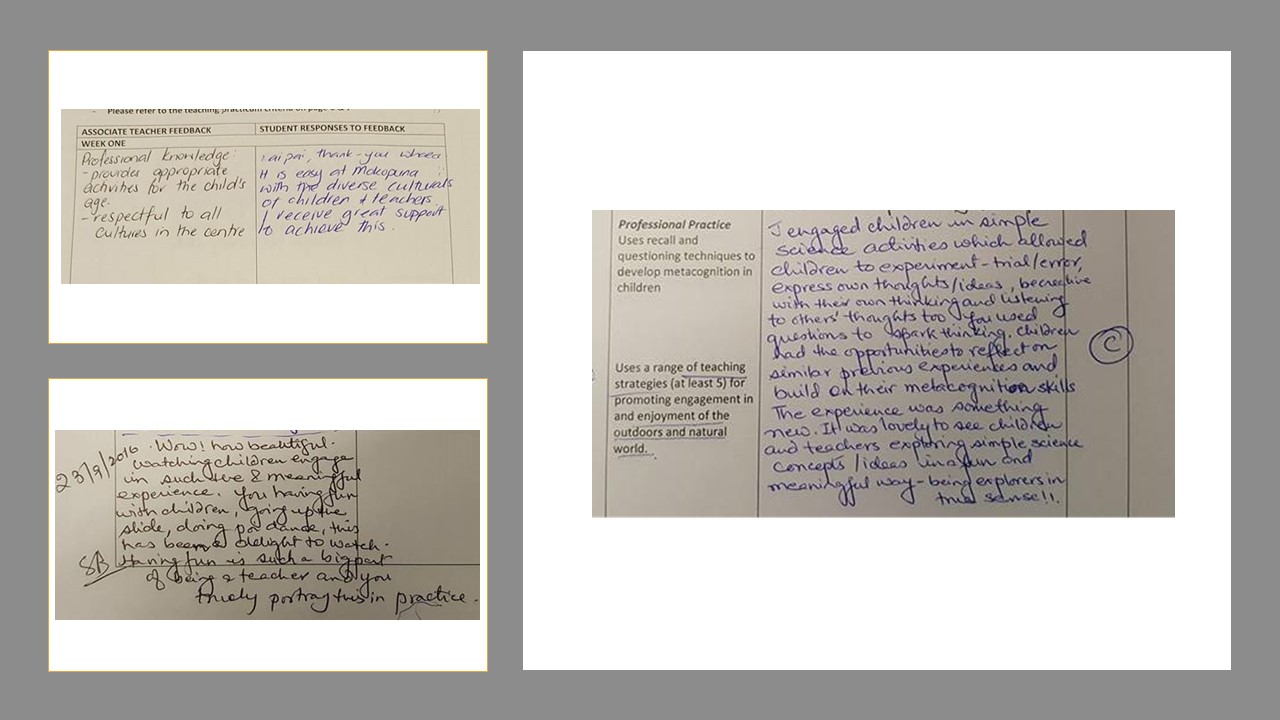 Please refer to the teaching practicum criteria on page
ASSOCIATE TEACHER FEEDBACK
STUDENT RESPONSES TO FEEDBACK
WEEK ONE
Professional knowledge:
- provides appropriate
activities for the child's
age.
- respectful to all
cultures in the centre
pai, thank-you whaea
It is easy at Mokopuna
with the diverse culturals
of children & teachers
I receive great support
to achieve this.
23/9/2016
Wow! how beautiful.
watching children engage
in such live & meaningful
experience. You having fun
with children, going up the
slide, doing poi dance, this
has been a delight to watch.
Having fun is such a big part
of being a teacher and you
truely portray this in practice.
SB
Professional Practice
Uses recall and
questioning techniques to
develop metacognition in
children
Uses a range of teaching
strategies (at least 5) for
promoting engagement in
and enjoyment of the
outdoors and natural
world.
I engaged children in simple
science activities which allowed
children to experiment-trial/error,
express own thoughts/ideas, be creative
with their own thinking and listening
to others' thoughts too. You used
questions to spark thinking. Children
had the opportunities to reflect on
similar previous experiences and
build on their metacognition skills
The experience was something
new. It was lovely to see children
and teachers exploring simple science
concepts/ideas in a fun and
meaningful way-being explorers in
true sense!!.
C